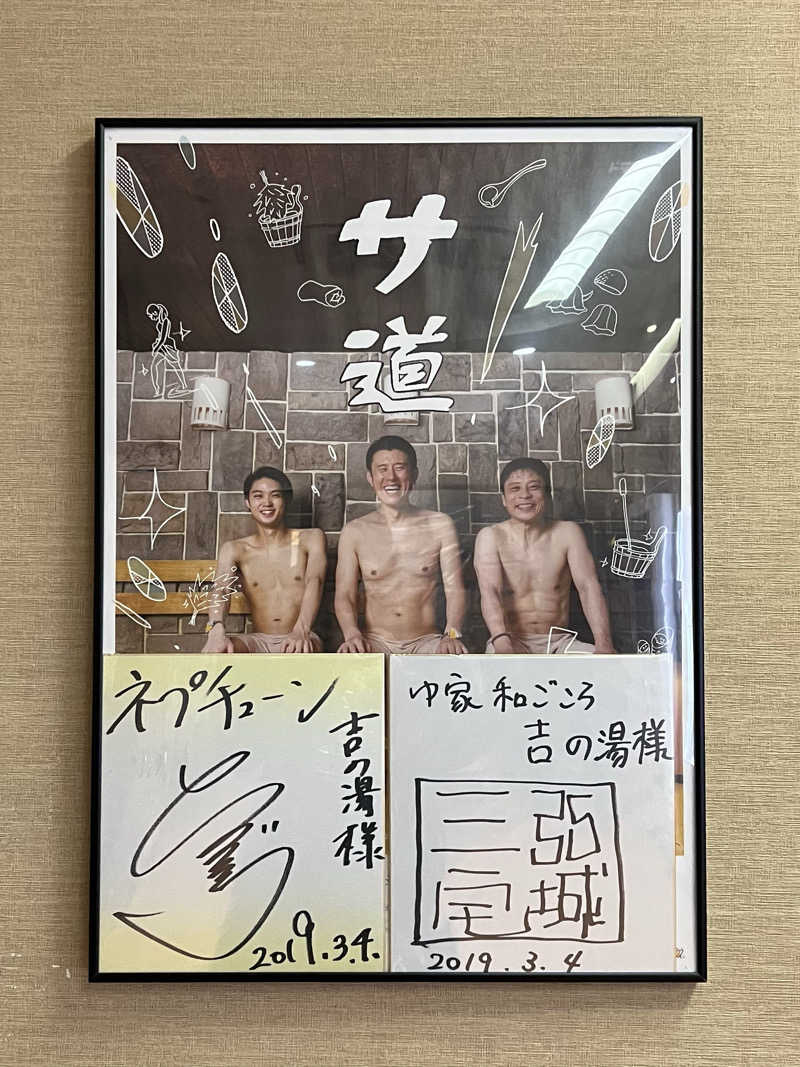 サ道
ネプチューン
吉の湯様
2019.3.4.
ゆ家 和ごころ
吉の湯様
三宅
弘城
2019.3.4